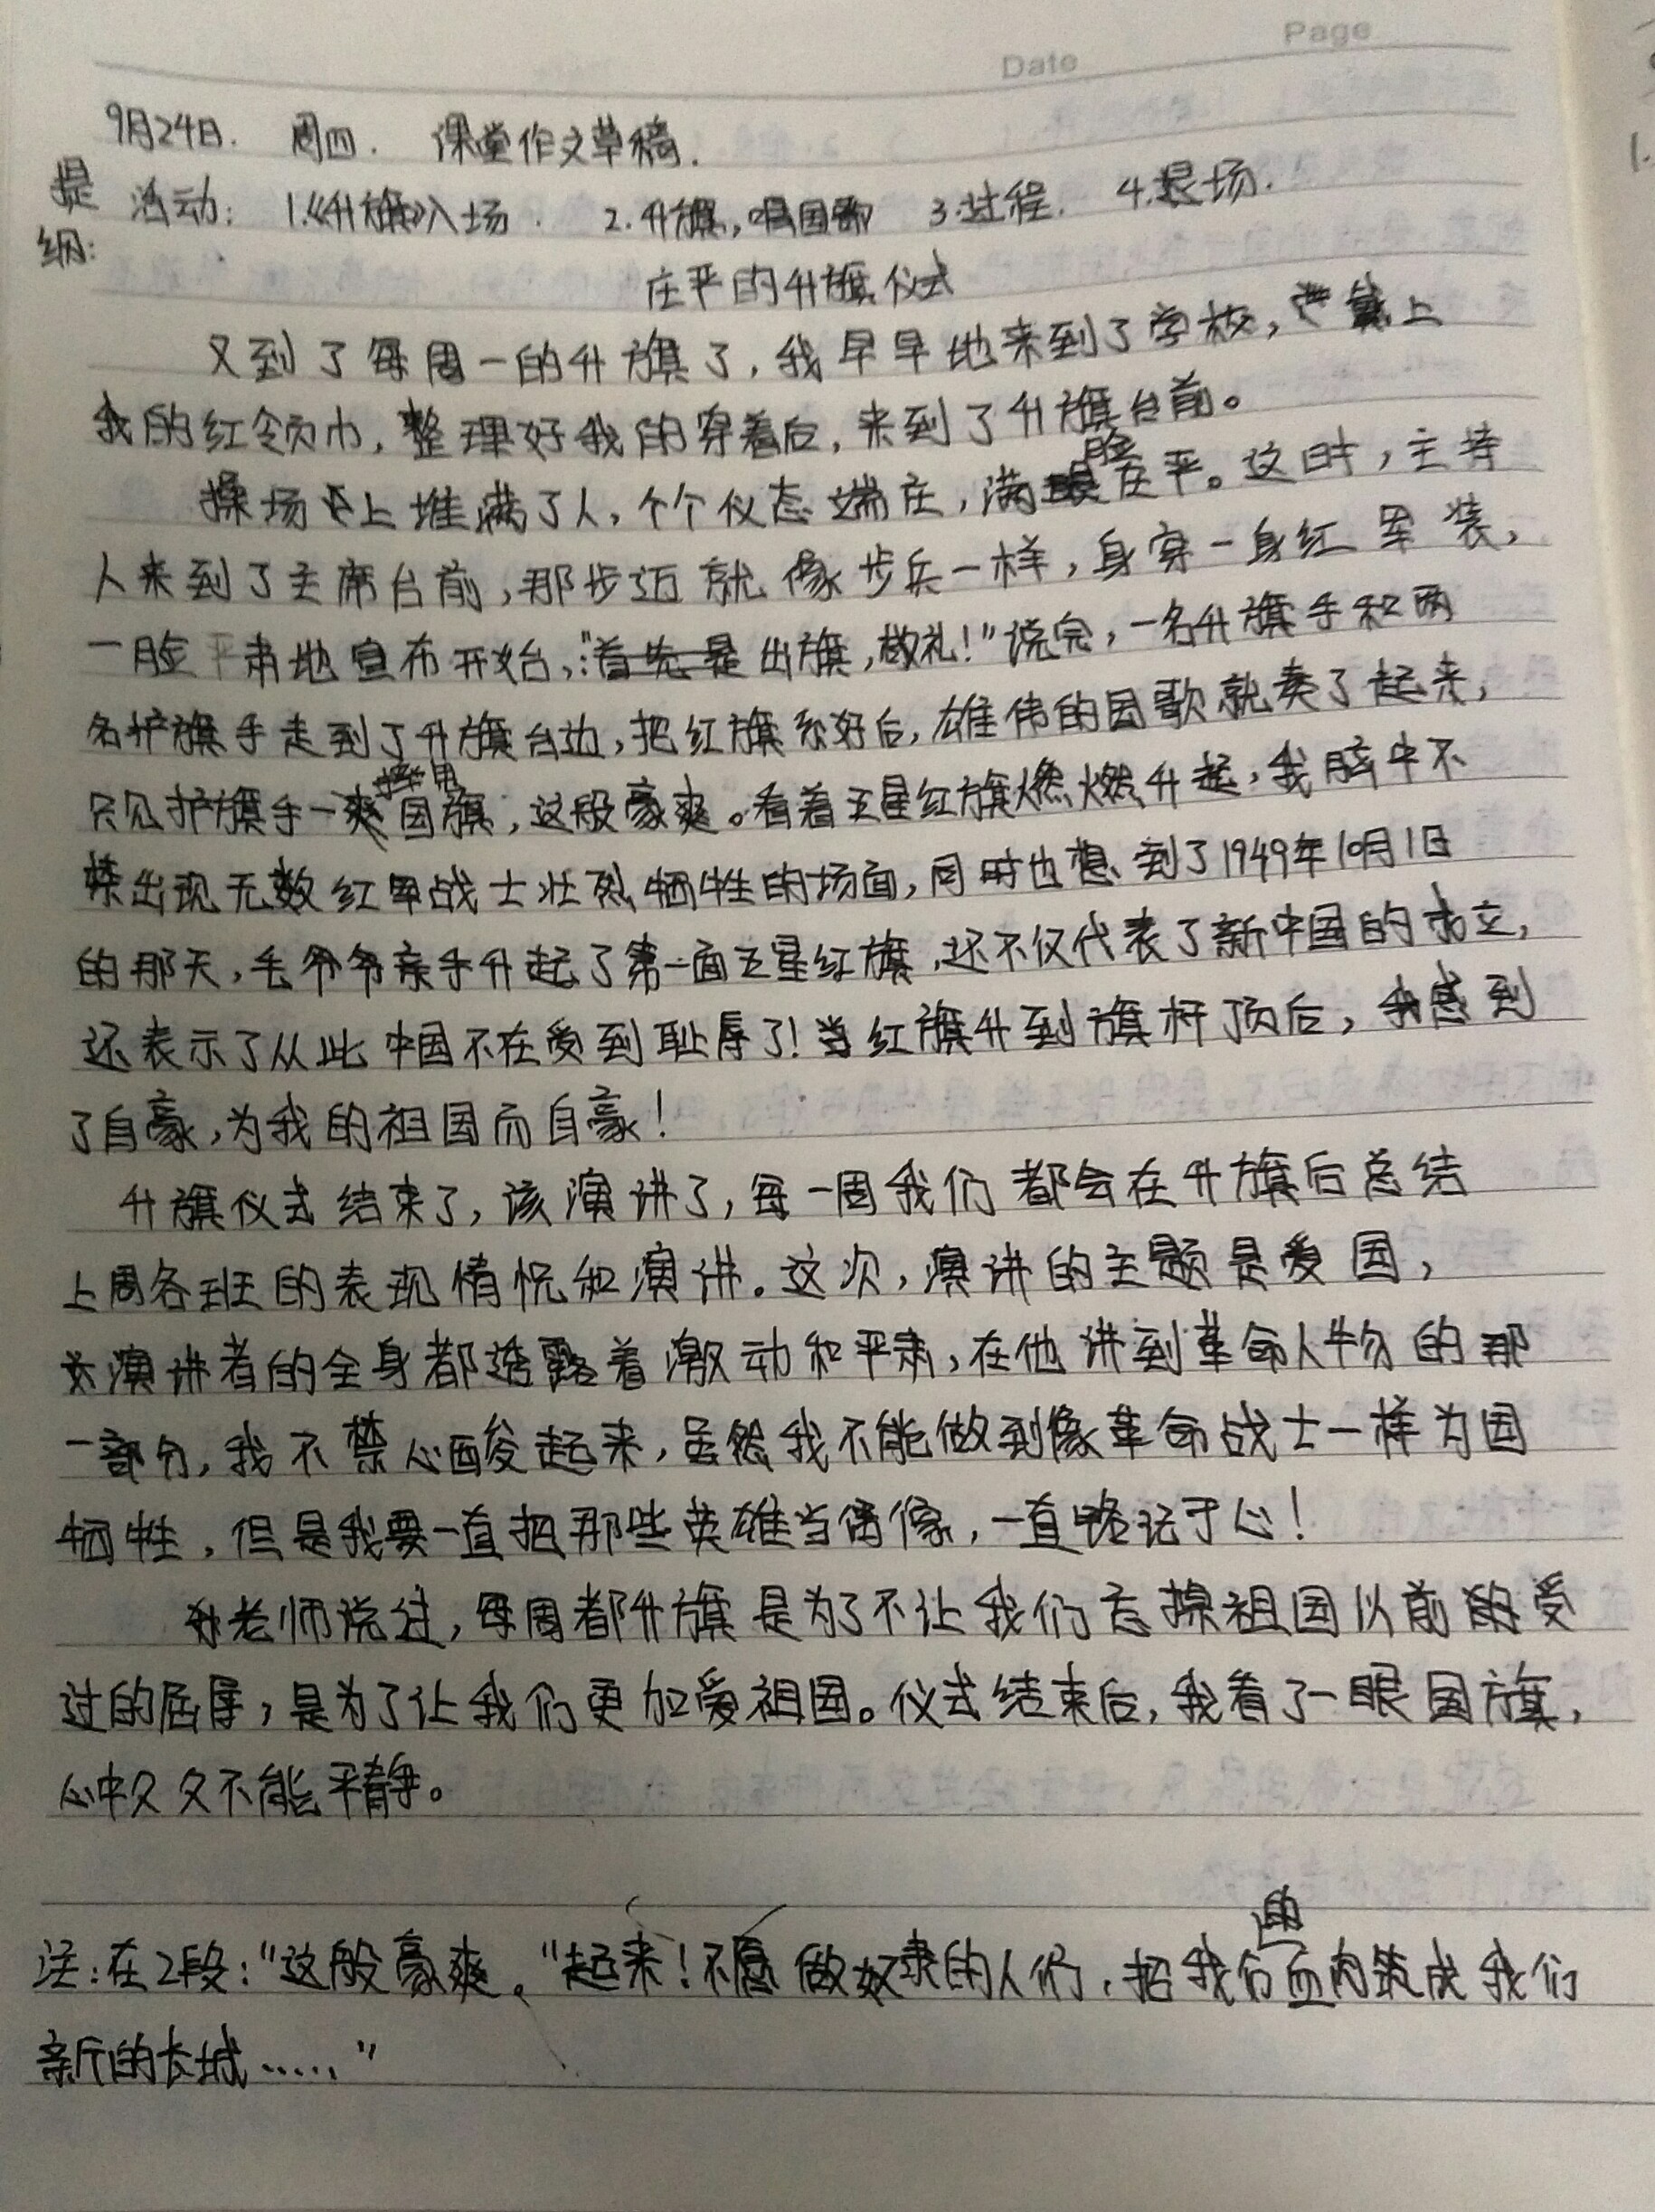 Page
Date
9月24日. 周四. 课堂作文草稿.
提纲: 活动: 1.《升旗》入场. 2.升旗,唱国歌 3.过程. 4.退场.
庄严的升旗仪式
又到了每周一的升旗了,我早早地来到了学校,戴上
我的红领巾,整理好我的穿着后,来到了升旗台前。
操场上堆满了人,个个仪态端庄,满脸庄严。这时,主持
人来到了主席台前,那步迈就像步兵一样,身穿一身红军装,
一脸严肃地宣布开始:"出旗,敬礼!"说完,一名升旗手和两
名护旗手走到了升旗台边,把红旗系好后,雄伟的国歌就奏了起来,
只见护旗手一国旗,这般豪爽。看着五星红旗燃燃升起,我脑中不
禁出现无数红军战士壮烈牺牲的场面,同时也想到了1949年10月1日
的那天,毛爷爷亲手升起了第一面五星红旗,还不仅代表了新中国的成立,
还表示了从此中国不在受到耻辱了!当红旗升到旗杆顶后,我感到
了自豪,为我的祖国而自豪!
升旗仪式结束了,该演讲了,每一周我们都会在升旗后总结
上周各班的表现情况和演讲。这次,演讲的主题是爱国,
演讲者的全身都透露着激动和严肃,在他讲到革命人物的那
一部分,我不禁心酸起来,虽然我不能做到像革命战士一样为国
牺牲,但是我要一直把那些英雄当偶像,一直铭记于心!
孙老师说过,每周都升旗是为了不让我们忘掉祖国以前受
过的屈辱,是为了让我们更加爱祖国。仪式结束后,我看了一眼国旗,
心中又又不能平静。
注:在2段:"这般豪爽。"起来!不愿做奴隶的人们,把我们的血肉筑成我们
新的长城……"